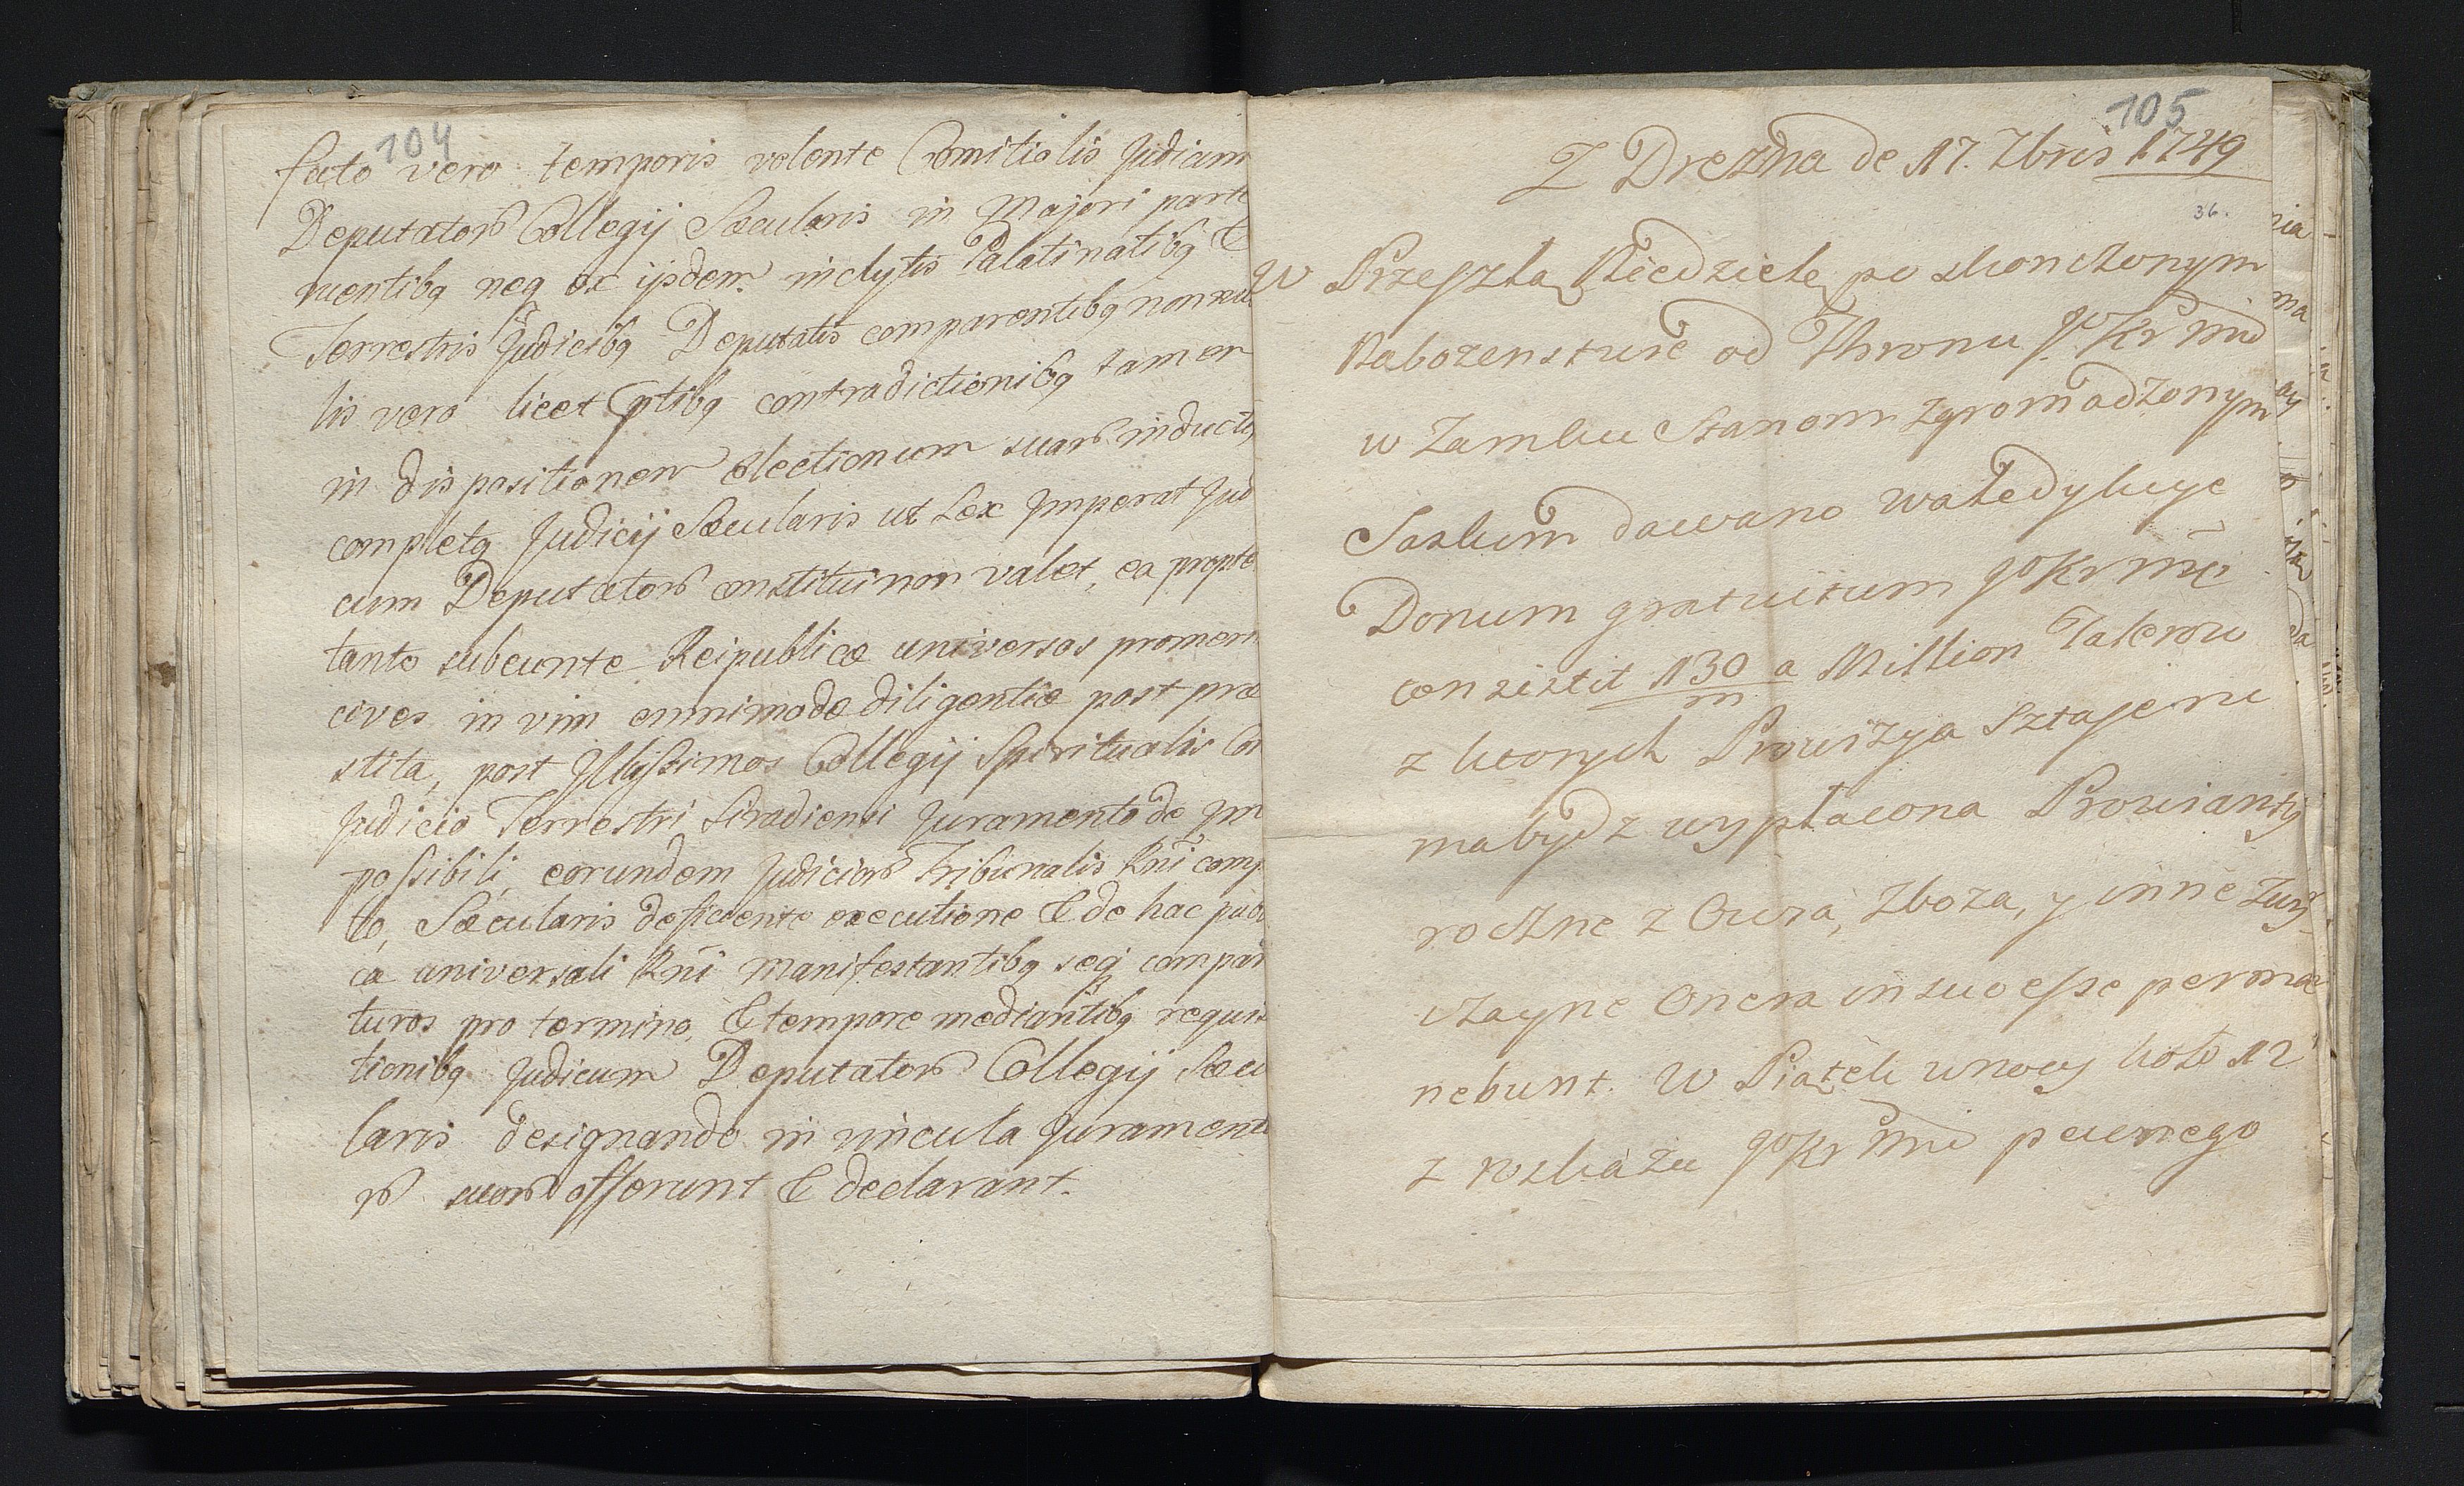 104
fato vero temporis volente Comitialis Judicum
Deputatorũ Collegij Sæcularis in Majori parte
mentibq neq ex ijsdem inclytis Palatinatibq &
Terrestris Judicibq Deputatis comparentibq non nul
lis vero licet contradictionibq tamen
in dispositionem electionum suarũ inductis
completq Judicij Sæcularis ut Lex Imperat Jud
cum Deputatorũ constitui non valet, ea propte
tanto subeunte Reipublicæ universos promeri
cives in vim omnimodæ diligentiæ post præ
stita, post Illũssimos Collegij Spiritualis Con
Judicio Terrestri Siradiensi Juramento de Im
possibili, eorundem Judiciorũ Tribunalis Rñi comp
to, Sæcularis deficiente executione & de hac pub
ca universali Rñi Manifestantibq seq compar
turos pro termino, & tempore mediantibq requisi
tionibq Judicum Deputatorũ Collegij Sæcu
laris designando in vincula Jurament
rũ suorũ offerunt & declarant.
105
Z Drezna de 17. 7bris 1749
36.
W Przeszłą Niedzielę po skonczonym
Nabozenstwie od Thronu JoKr Mci
w Zamku Stanom zgromadzonym
Saskim dawano waledykcye
Donum gratuitum JoKrMci
consistit 130/m a Million Talerow
z ktorych Prowizya Sztajerne
ma bydz wypłacona Prowianty
roczne z Owsa, Zboza, y inne Zwy-
czayne Onera in suo esse perma
nebunt. W Piątek w nocy koło 12
z rozkazu JoKr Mci pewnego